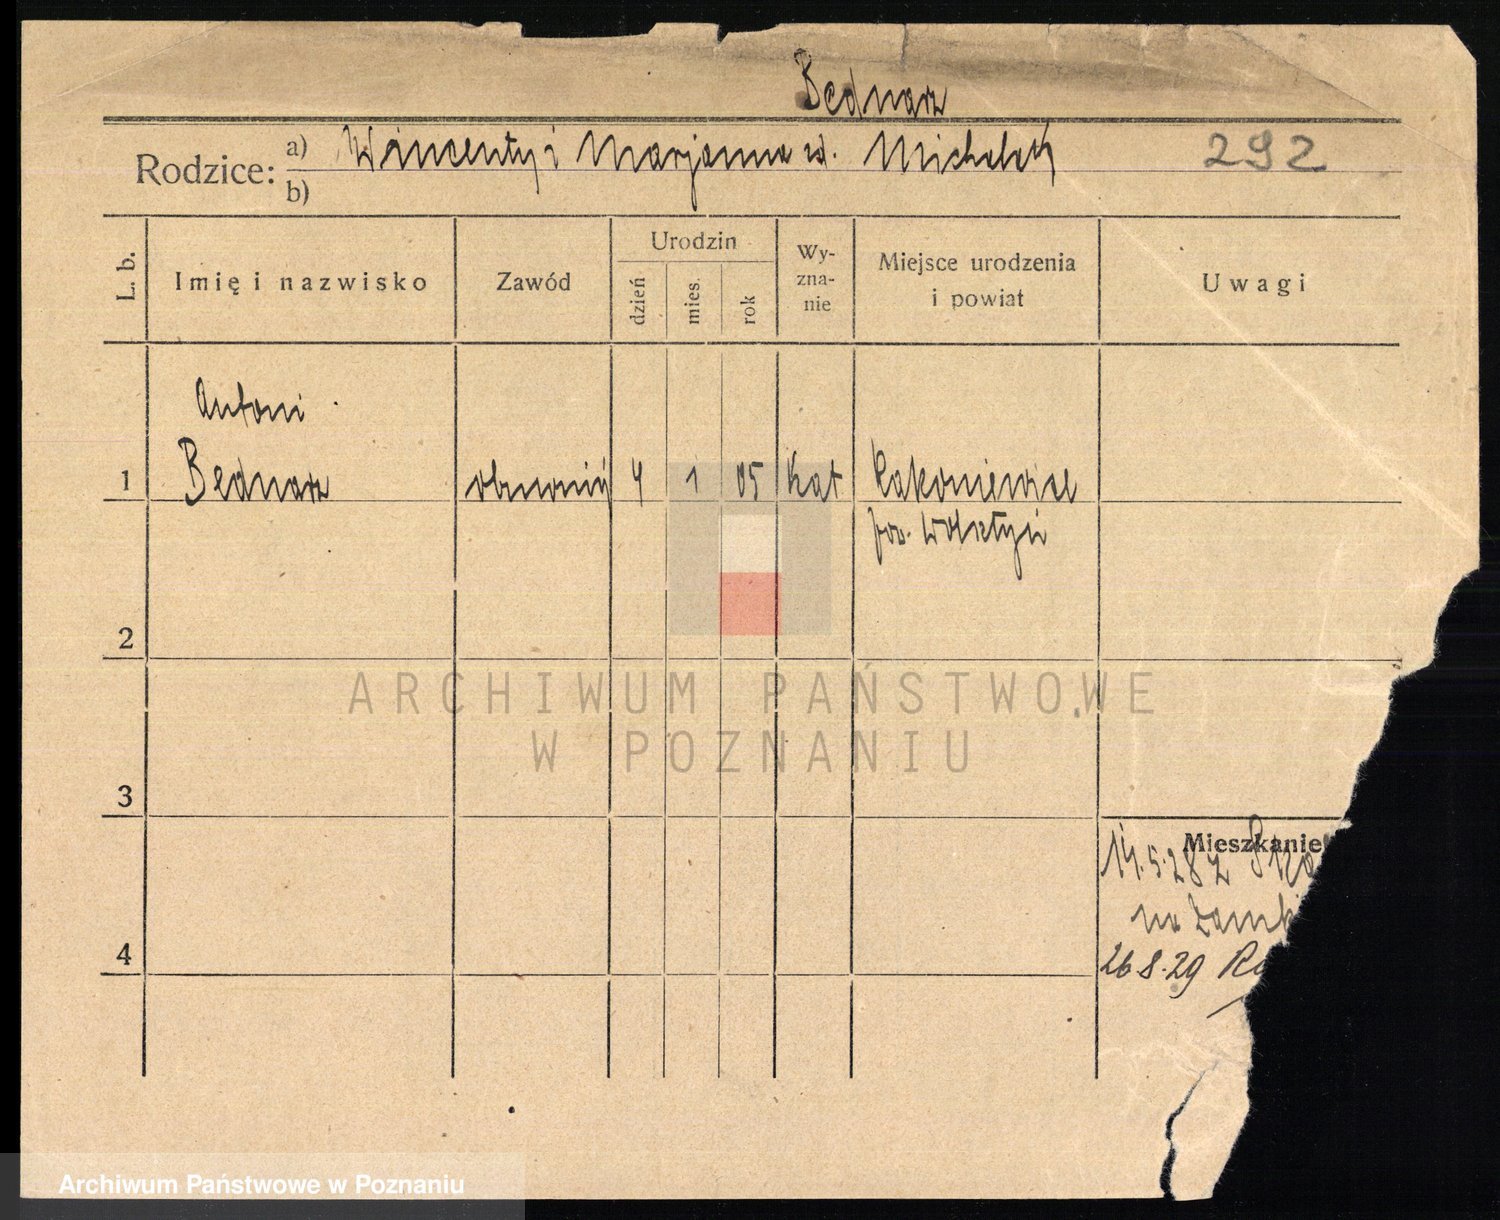 Bednarz
Rodzice: a) Wincenty i Marjanna zd.
b)
292
L. b.
Imię i nazwisko
Zawód
Urodzin
dzień
mies.
rok
Wy-
zna-
nie
Miejsce urodzenia
i powiat
Uwagi
Antoni
1 Bednarz 4 1 05 Kat Rakoniewice
pow. Wolsztyn
2
3
4
Mieszkanie
14.5.28 z
na Zamk
26.8.29 Ra
ARCHIWUM PAŃSTWOWE
W POZNANIU
Archiwum Państwowe w Poznaniu